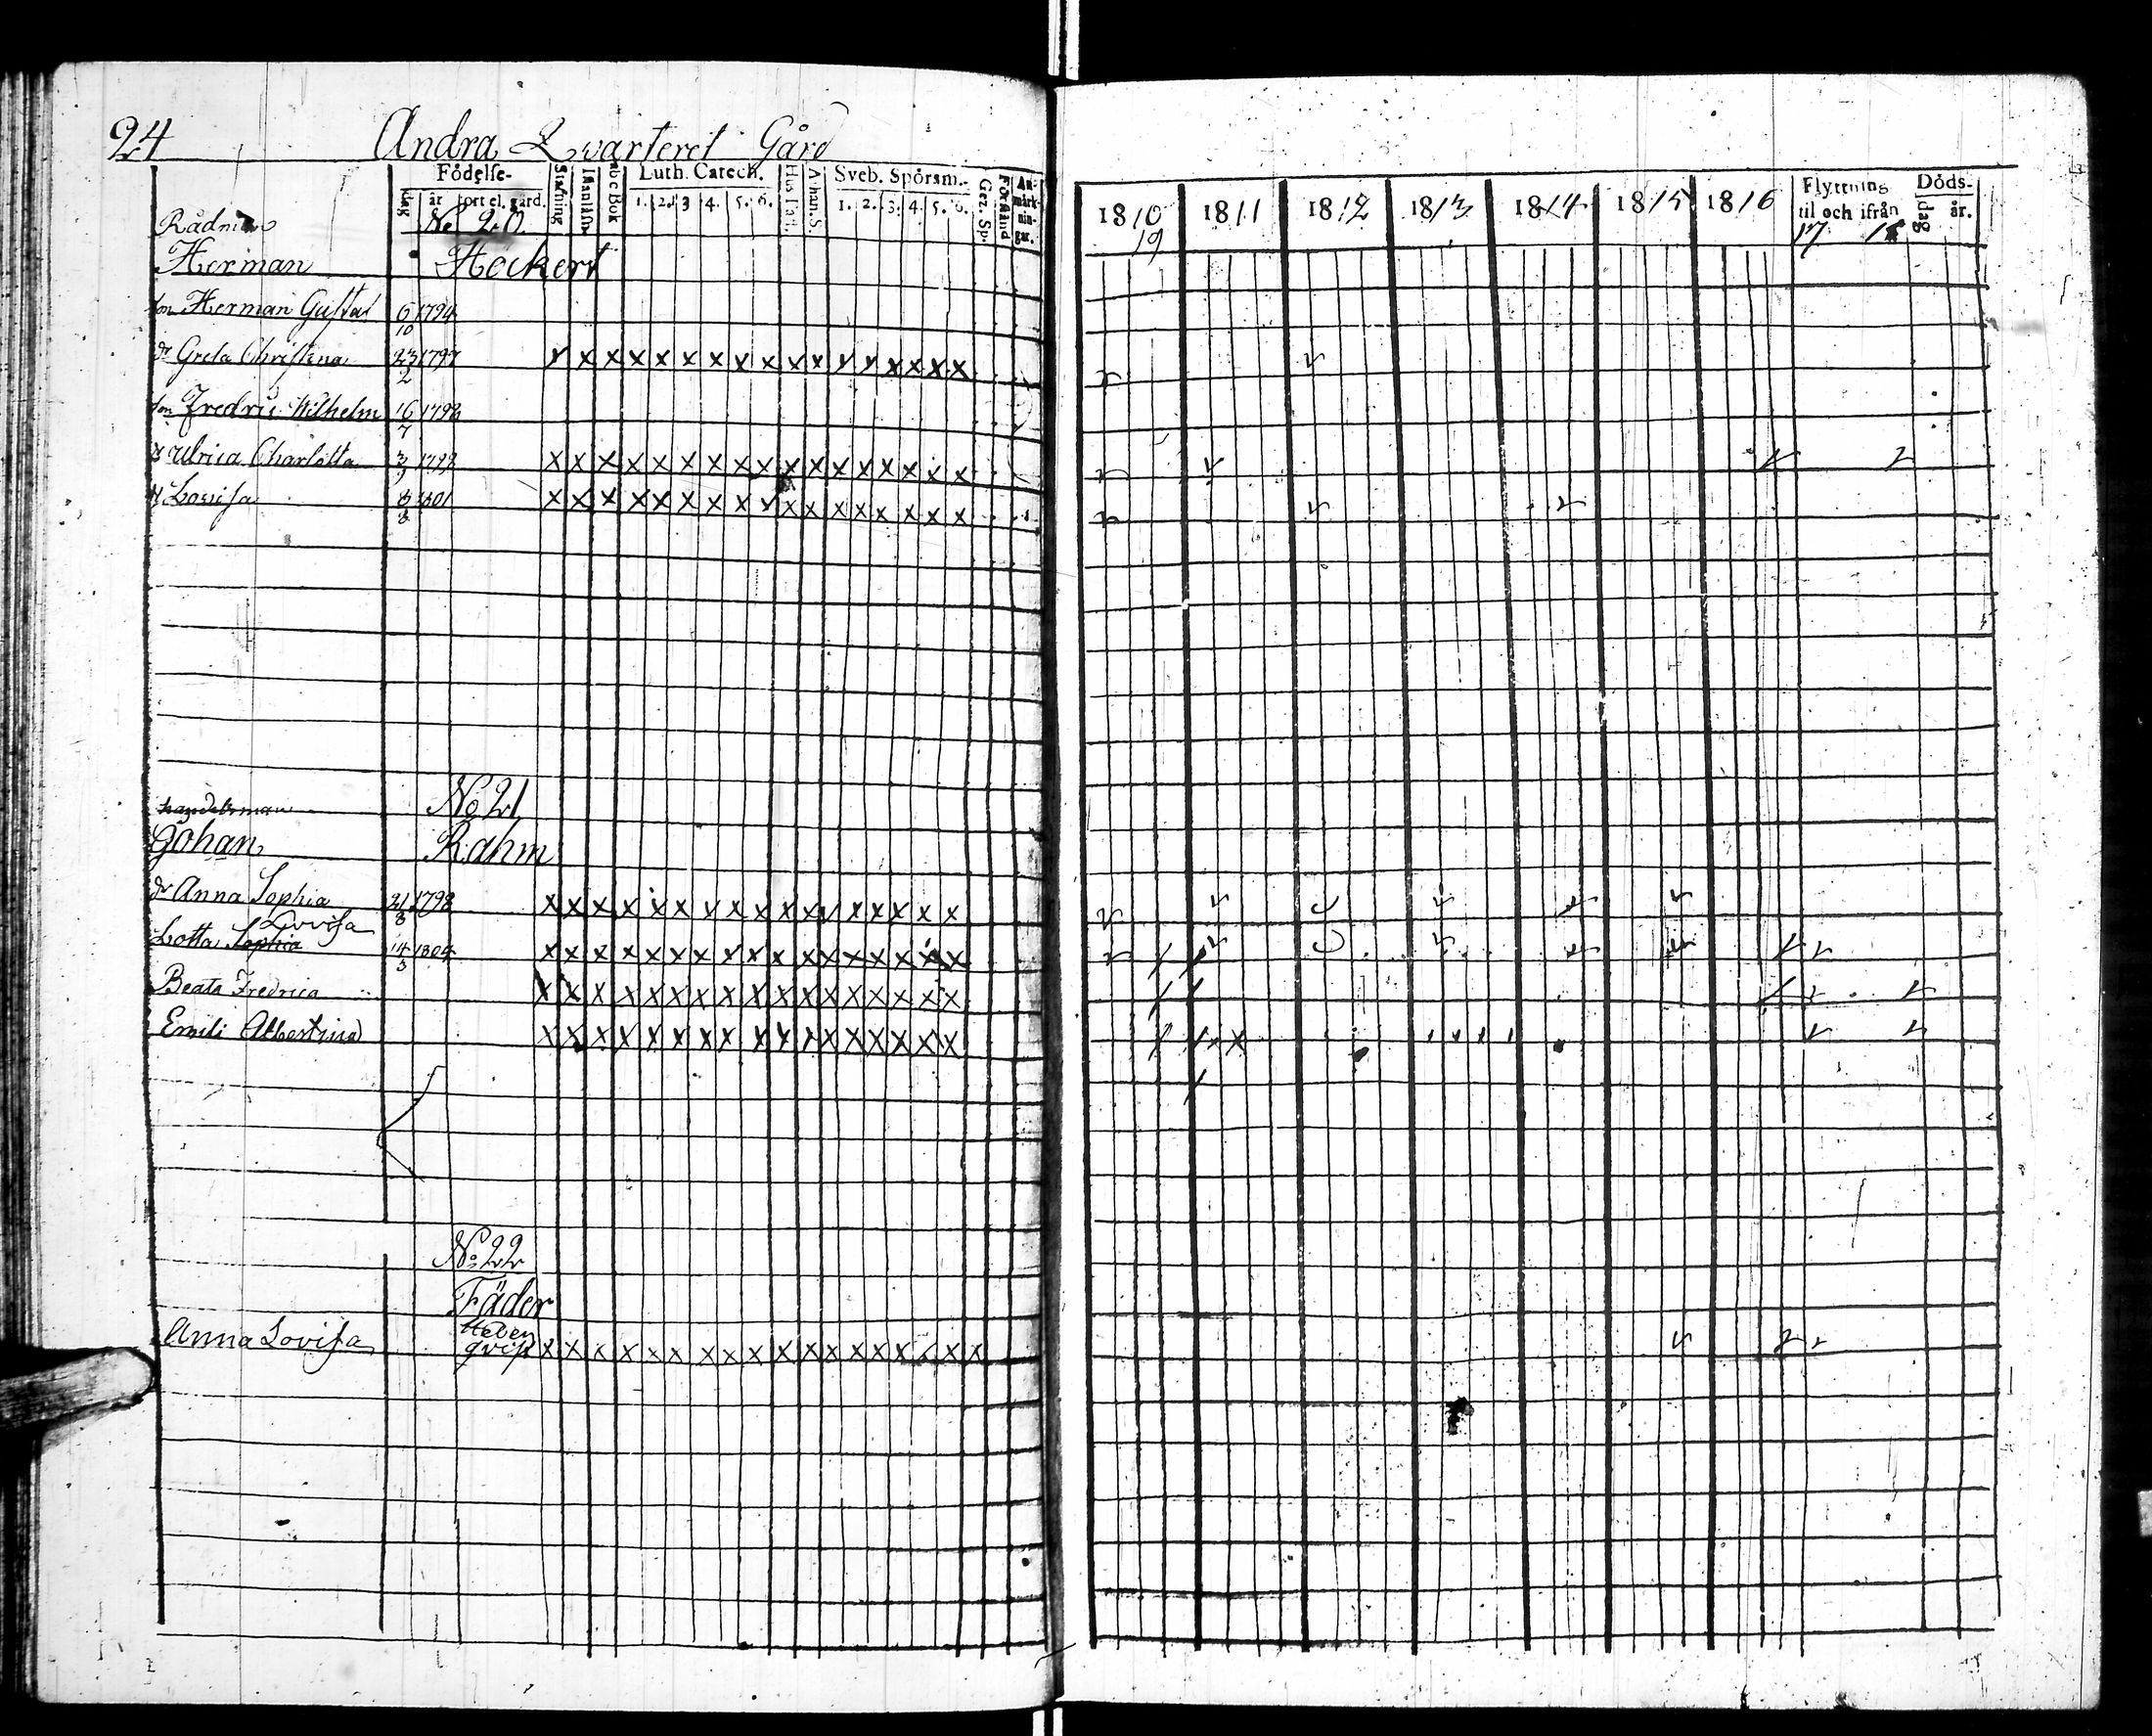 24 Andra Qvarteret Gård
Födelse-
dag år ort el. gård.
Stafning Innanläsn. abc Bok
Luth. Catech.
1. 2. 3 4. 5. 6.
Hus Tafl. Athan. S.
Sveb. Spörsm.
1. 2. 3. 4. 5. 6.
Gez. Sp. Förstånd
An-
märk-
nin-
gar.
1810 1811 1812 1813 1814 1815 1816
19
Flyttning
til och ifrån
17
Döds-
dag år.
Rådman No 20.
Herman Höckert
son Herman Gustaf 6/10 1794
dr Greta Christina 23/2 1797 x x x x x x x x x x x x x x x x x
son Fredric Wilhelm 16/7 1792
dr Ulrica Charlotta 3/9 1798 x x x x x x x x x x x x x x x x x
dr Lovisa 8/8 1801 x x x x x x x x x x x x x x x x x
handelsman No 21
Johan Rahm
dr Anna Sophia 21/8 1798 x x x x x x x x x x x x x x x x x
Lovisa
Lotta Sophia 14/3 1804 x x x x x x x x x x x x x x x x x
Beata Fredrica x x x x x x x x x x x x x x x x x
Emili Albertina x x x x x x x x x x x x x x x x x
No 22
Fäder
Anna Lovisa Heden
qvist x x x x x x x x x x x x x x x x x x